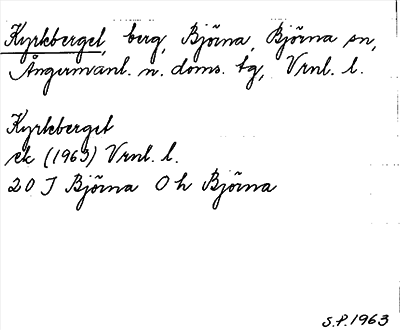 Kyrkberget, berg, Björna, Björna sn,
Ångermanl. n. doms. tg, Vrnl. l.
Kyrkberget
ek (1963) Vrnl. l.
20 J Björna O h Björna
S.P. 1963